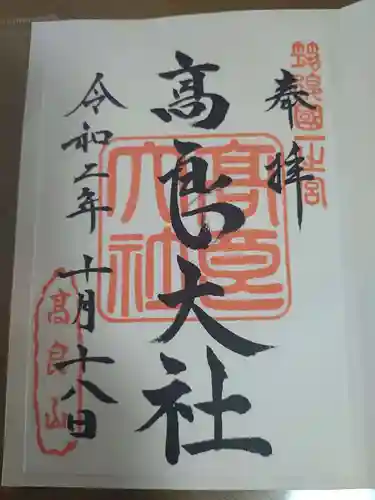 奉拝
筑後國一之宮
高良大社
高良大社
令和二年十月十八日
高良山